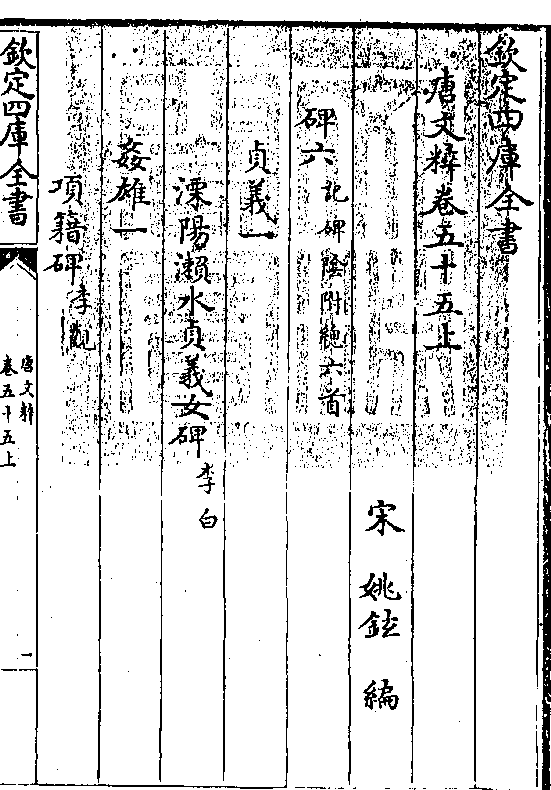 欽定四庫全書
唐文粹卷五十五上
宋 姚鉉 編
碑六 記碑陰附總六首
貞義一
溧陽瀨水貞義女碑 李白
姦雄一
項籍碑 李觀
欽定四庫全書
唐文粹
卷五十五上
一